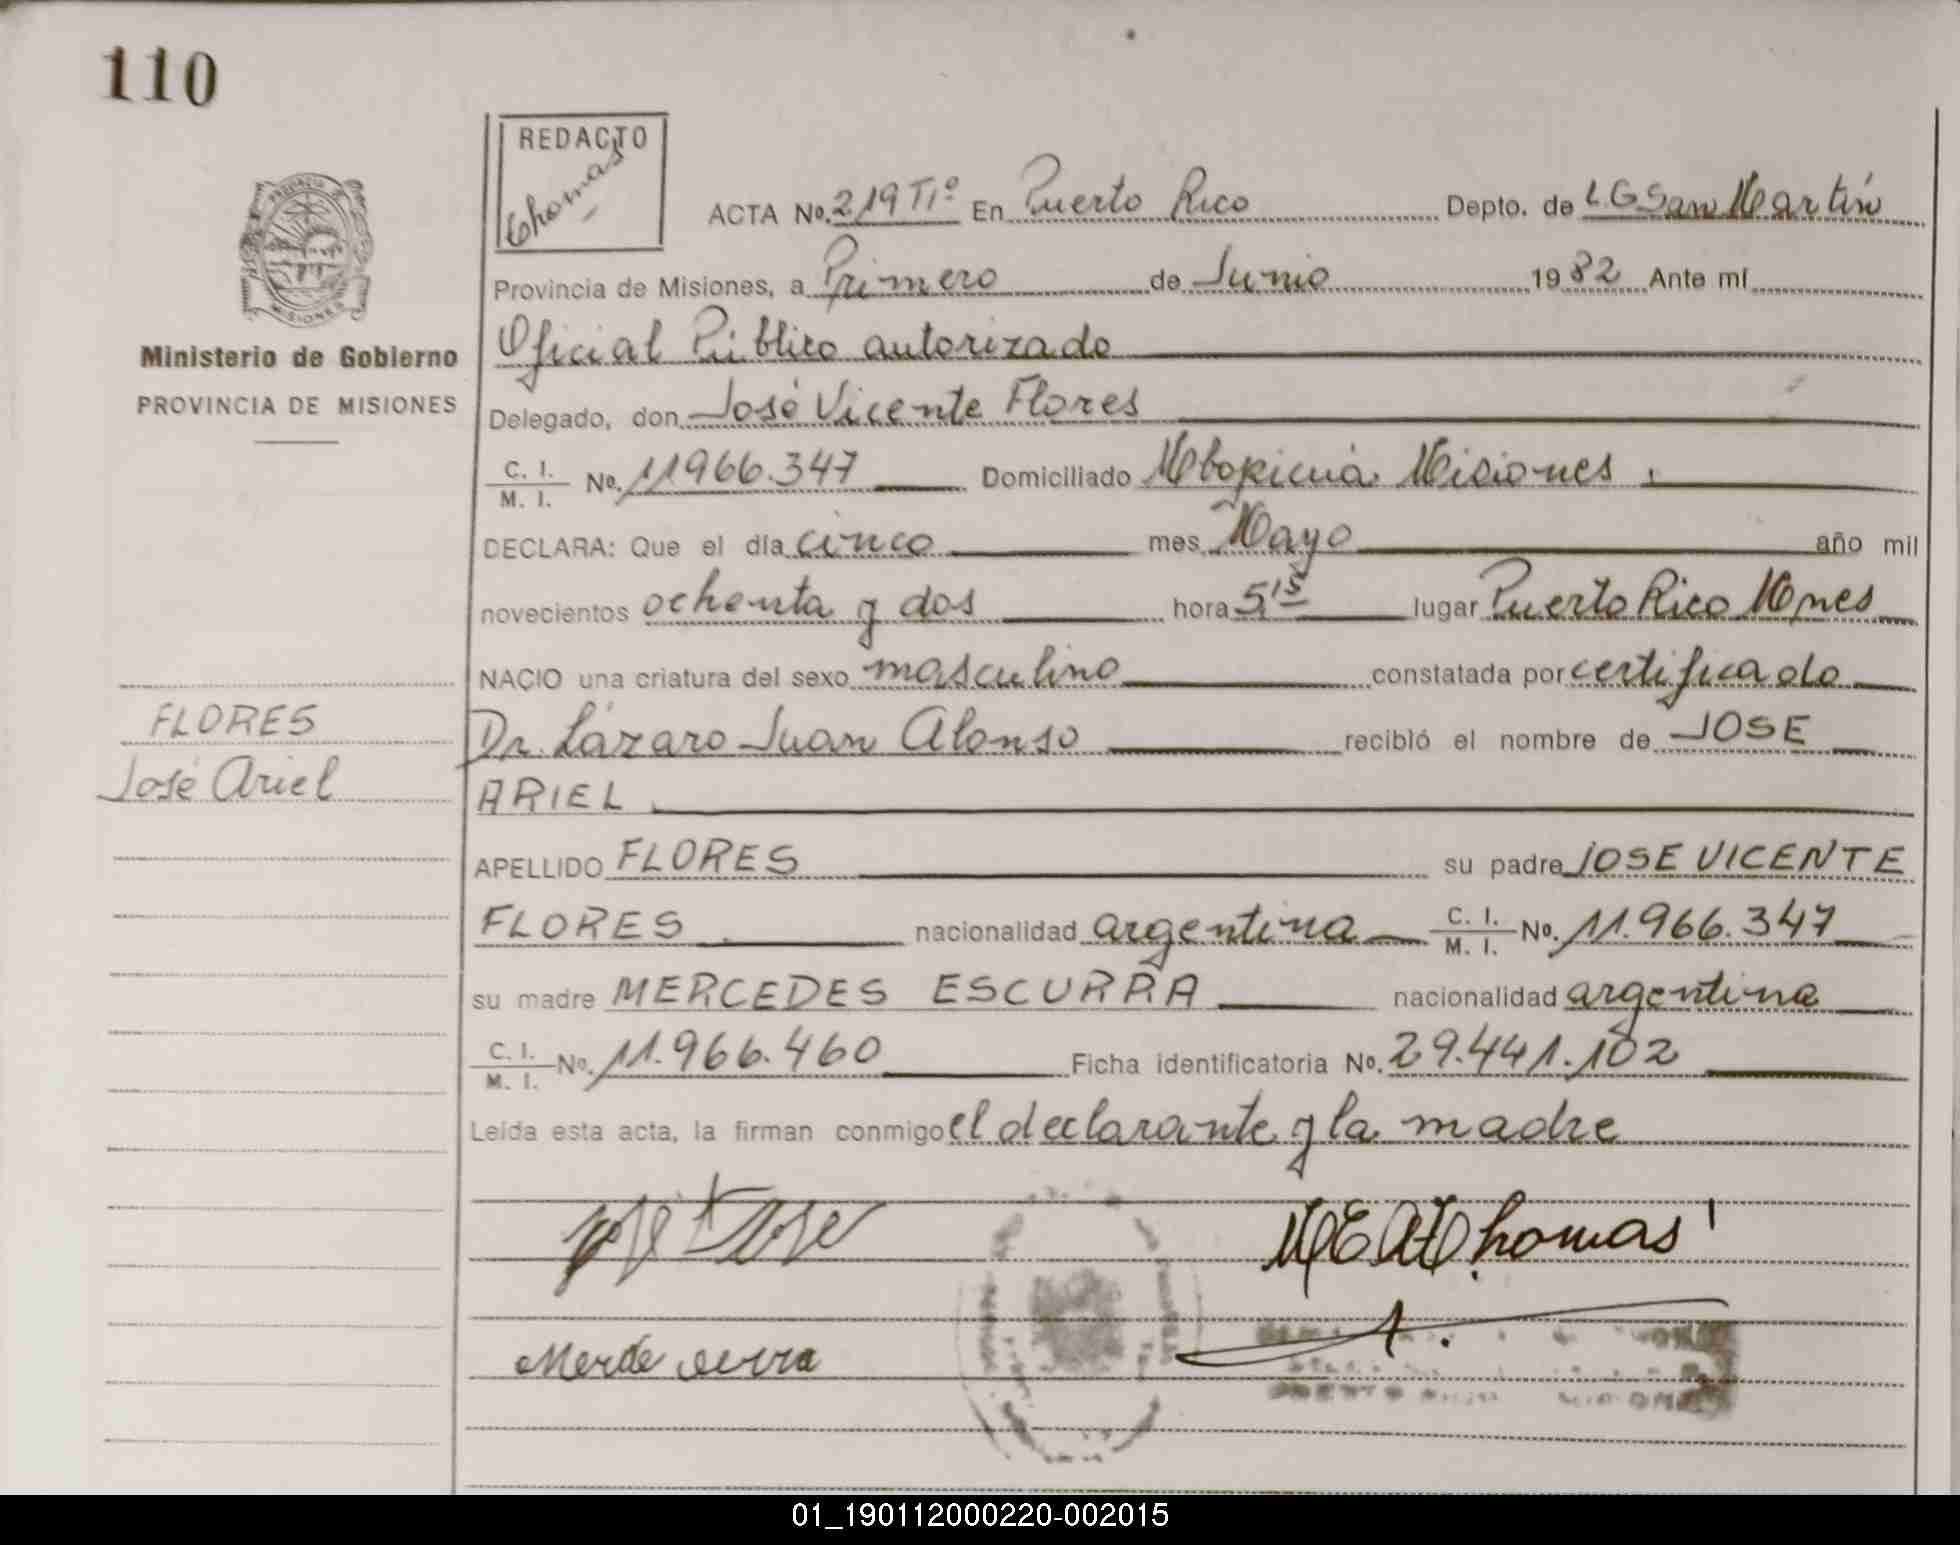 110
REDACTO
Thomas
ACTA No. 219 TIº En Puerto Rico Depto. de L.G San Martín
Provincia de Misiones, a Primero de Junio 1982 Ante mí
Ministerio de Gobierno
PROVINCIA DE MISIONES
Oficial Público autorizado
Delegado, don José Vicente Flores
C. I. / M. I. No. 11966.347 Domiciliado Mbopicuá Misiones
DECLARA: Que el día cinco mes Mayo año mil
novecientos ochenta y dos hora 5,15 lugar Puerto Rico Mnes
NACIO una criatura del sexo masculino constatada por certificado
FLORES
Dr. Lázaro Juan Alonso recibió el nombre de JOSE
José Ariel
ARIEL
APELLIDO FLORES su padre JOSE VICENTE
FLORES nacionalidad argentina C. I. / M. I. No. 11.966.347
su madre MERCEDES ESCURRA nacionalidad argentina
C. I. / M. I. No. 11.966.460 Ficha identificatoria No. 29.441.102
Leída esta acta, la firman conmigo el declarante y la madre
Thomas
01_190112000220-002015